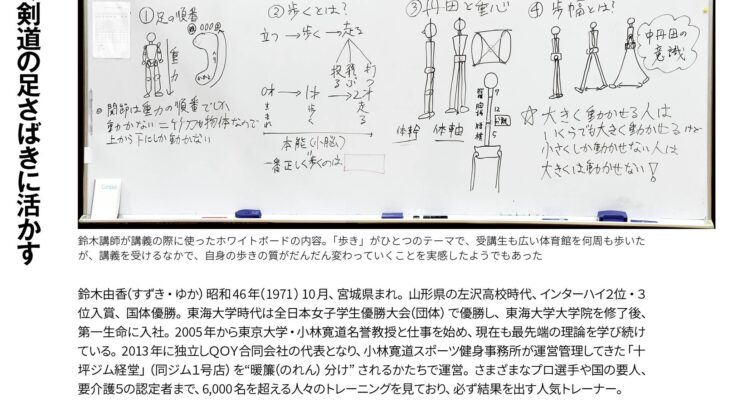 剣道の足さばきに活かす
①足の順番
重力
かかと
関節は重力の順番でしか
動かない 二キロ加物体なので
上から下にしか動かない
②歩くとは?
立つ→歩く→走る
投げる 跳ぶ 打つ
0才→1才→2才
生まれ 歩く 走る
本能(小脳)
一番正しく歩くのは
③丹田と重心
体幹 体軸
7
12
5
④歩幅とは?
中丹田の
意識
☆大きく動かせる人は
いくらでも大きく動かせるけど
小さくしか動かせない人は
大きくは動かせない!
鈴木講師が講義の際に使ったホワイトボードの内容。「歩き」がひとつのテーマで、受講生も広い体育館を何周も歩いた
が、講義を受けるなかで、自身の歩きの質がだんだん変わっていくことを実感したようでもあった
鈴木由香(すずき・ゆか)昭和46年(1971)10月、宮城県まれ。山形県の左沢高校時代、インターハイ2位・3
位入賞、国体優勝。東海大学時代は全日本女子学生優勝大会(団体)で優勝し、東海大学大学院を修了後、
第一生命に入社。2005年から東京大学・小林寛道名誉教授と仕事を始め、現在も最先端の理論を学び続け
ている。2013年に独立しQOY合同会社の代表となり、小林寛道スポーツ健身事務所が運営管理してきた「十
坪ジム経堂」(同ジム1号店)を“暖簾(のれん)分け”されるかたちで運営。さまざまなプロ選手や国の要人、
要介護5の認定者まで、6,000名を超える人々のトレーニングを見ており、必ず結果を出す人気トレーナー。